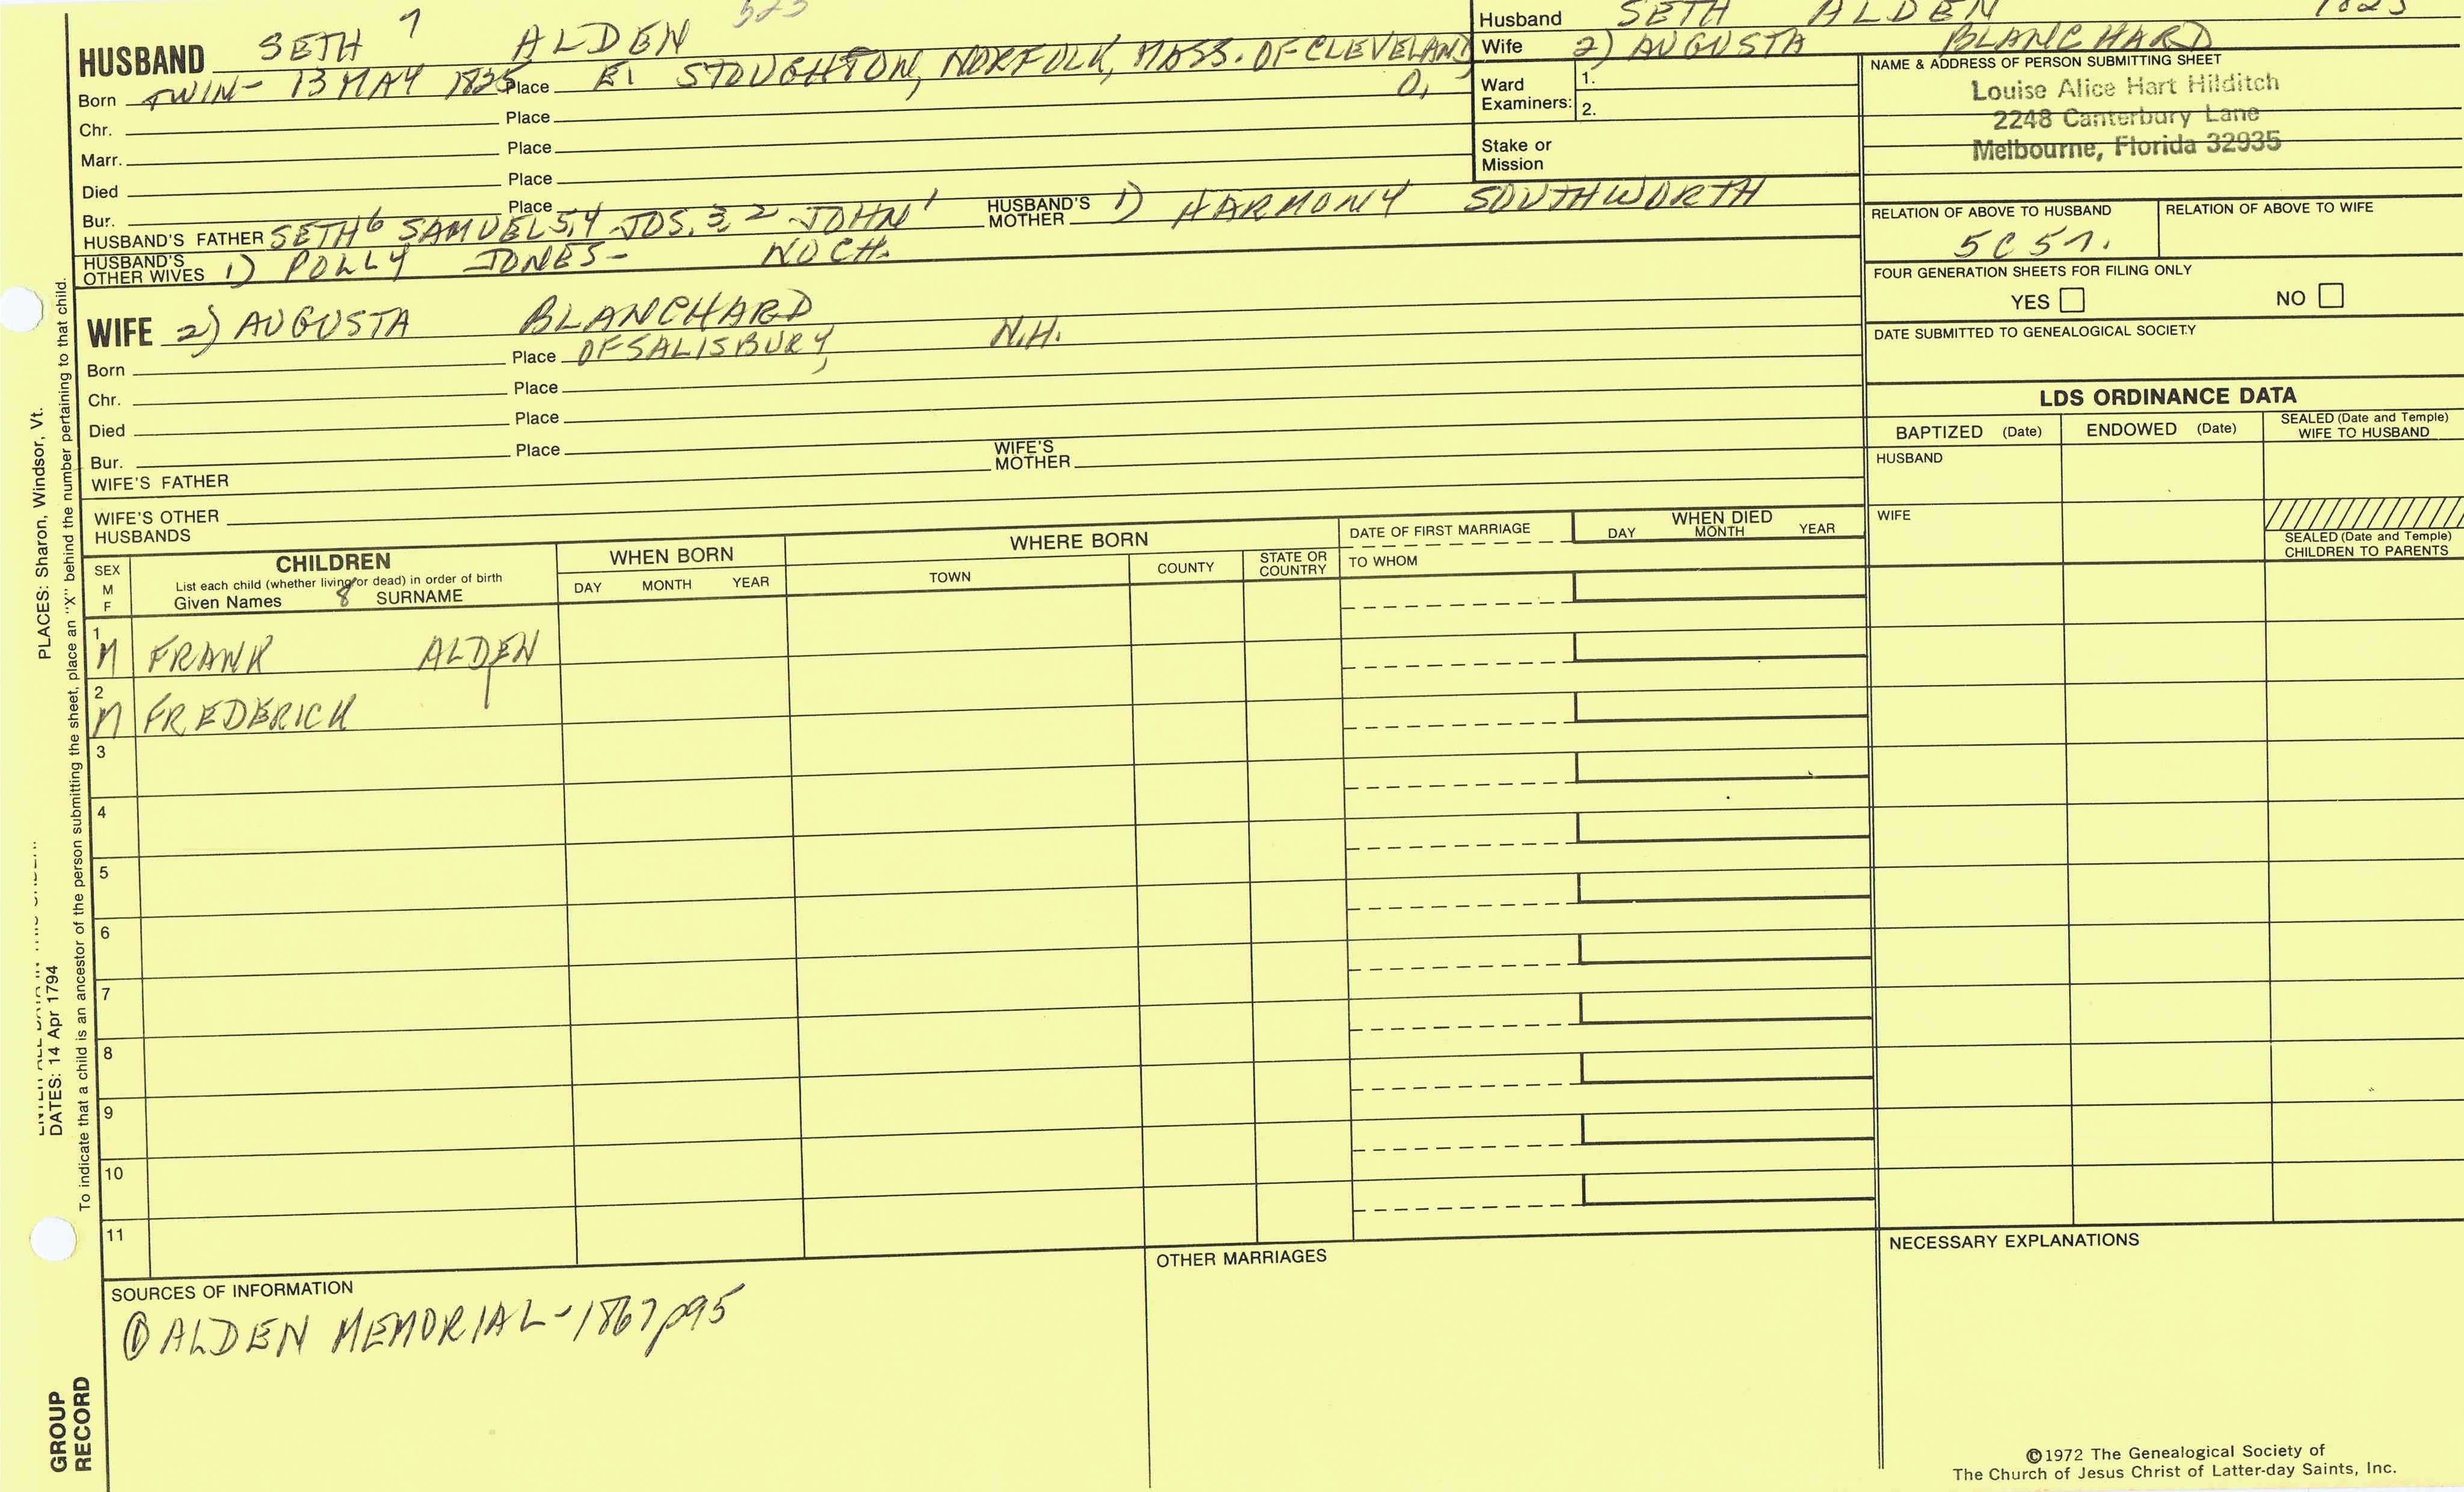 HUSBAND SETH 7 ALDEN 523
Born TWIN- 13 MAY 1825 Place E. STOUGHTON, NORFOLK, MASS. OF CLEVELAND
O,
Chr. Place
Marr. Place
Died Place
Bur. Place
HUSBAND'S FATHER SETH6 SAMUEL 5,4 JOS. 3,2 JOHN1 HUSBAND'S MOTHER 1) HARMONY SOUTHWORTH
HUSBAND'S OTHER WIVES 1) POLLY JONES- NO CH.
WIFE 2) AUGUSTA BLANCHARD
Born Place OF SALISBURY, N.H.
Chr. Place
Died Place
Bur. Place
WIFE'S FATHER WIFE'S MOTHER
WIFE'S OTHER HUSBANDS
Husband SETH ALDEN 1825
Wife 2) AUGUSTA BLANCHARD
Ward Examiners: 1.
2.
Stake or Mission
NAME & ADDRESS OF PERSON SUBMITTING SHEET
Louise Alice Hart Hilditch
2248 Canterbury Lane
Melbourne, Florida 32935
RELATION OF ABOVE TO HUSBAND RELATION OF ABOVE TO WIFE
5C 5r.
FOUR GENERATION SHEETS FOR FILING ONLY
YES NO
DATE SUBMITTED TO GENEALOGICAL SOCIETY
LDS ORDINANCE DATA
BAPTIZED (Date) ENDOWED (Date) SEALED (Date and Temple) WIFE TO HUSBAND
HUSBAND
WIFE
SEALED (Date and Temple)
CHILDREN TO PARENTS
SEX M F
CHILDREN
List each child (whether living or dead) in order of birth
Given Names 8 SURNAME
WHEN BORN
DAY MONTH YEAR
WHERE BORN
TOWN COUNTY STATE OR COUNTRY
DATE OF FIRST MARRIAGE
TO WHOM
WHEN DIED
DAY MONTH YEAR
1 M FRANK ALDEN
2 M FREDERICK
3
4
5
6
7
8
9
10
11
SOURCES OF INFORMATION
① ALDEN MEMORIAL-1867 p95
OTHER MARRIAGES
NECESSARY EXPLANATIONS
©1972 The Genealogical Society of
The Church of Jesus Christ of Latter-day Saints, Inc.
PLACES: Sharon, Windsor, Vt.
DATES: 14 Apr 1794
To indicate that a child is an ancestor of the person submitting the sheet, place an "X" behind the number pertaining to that child.
GROUP
RECORD